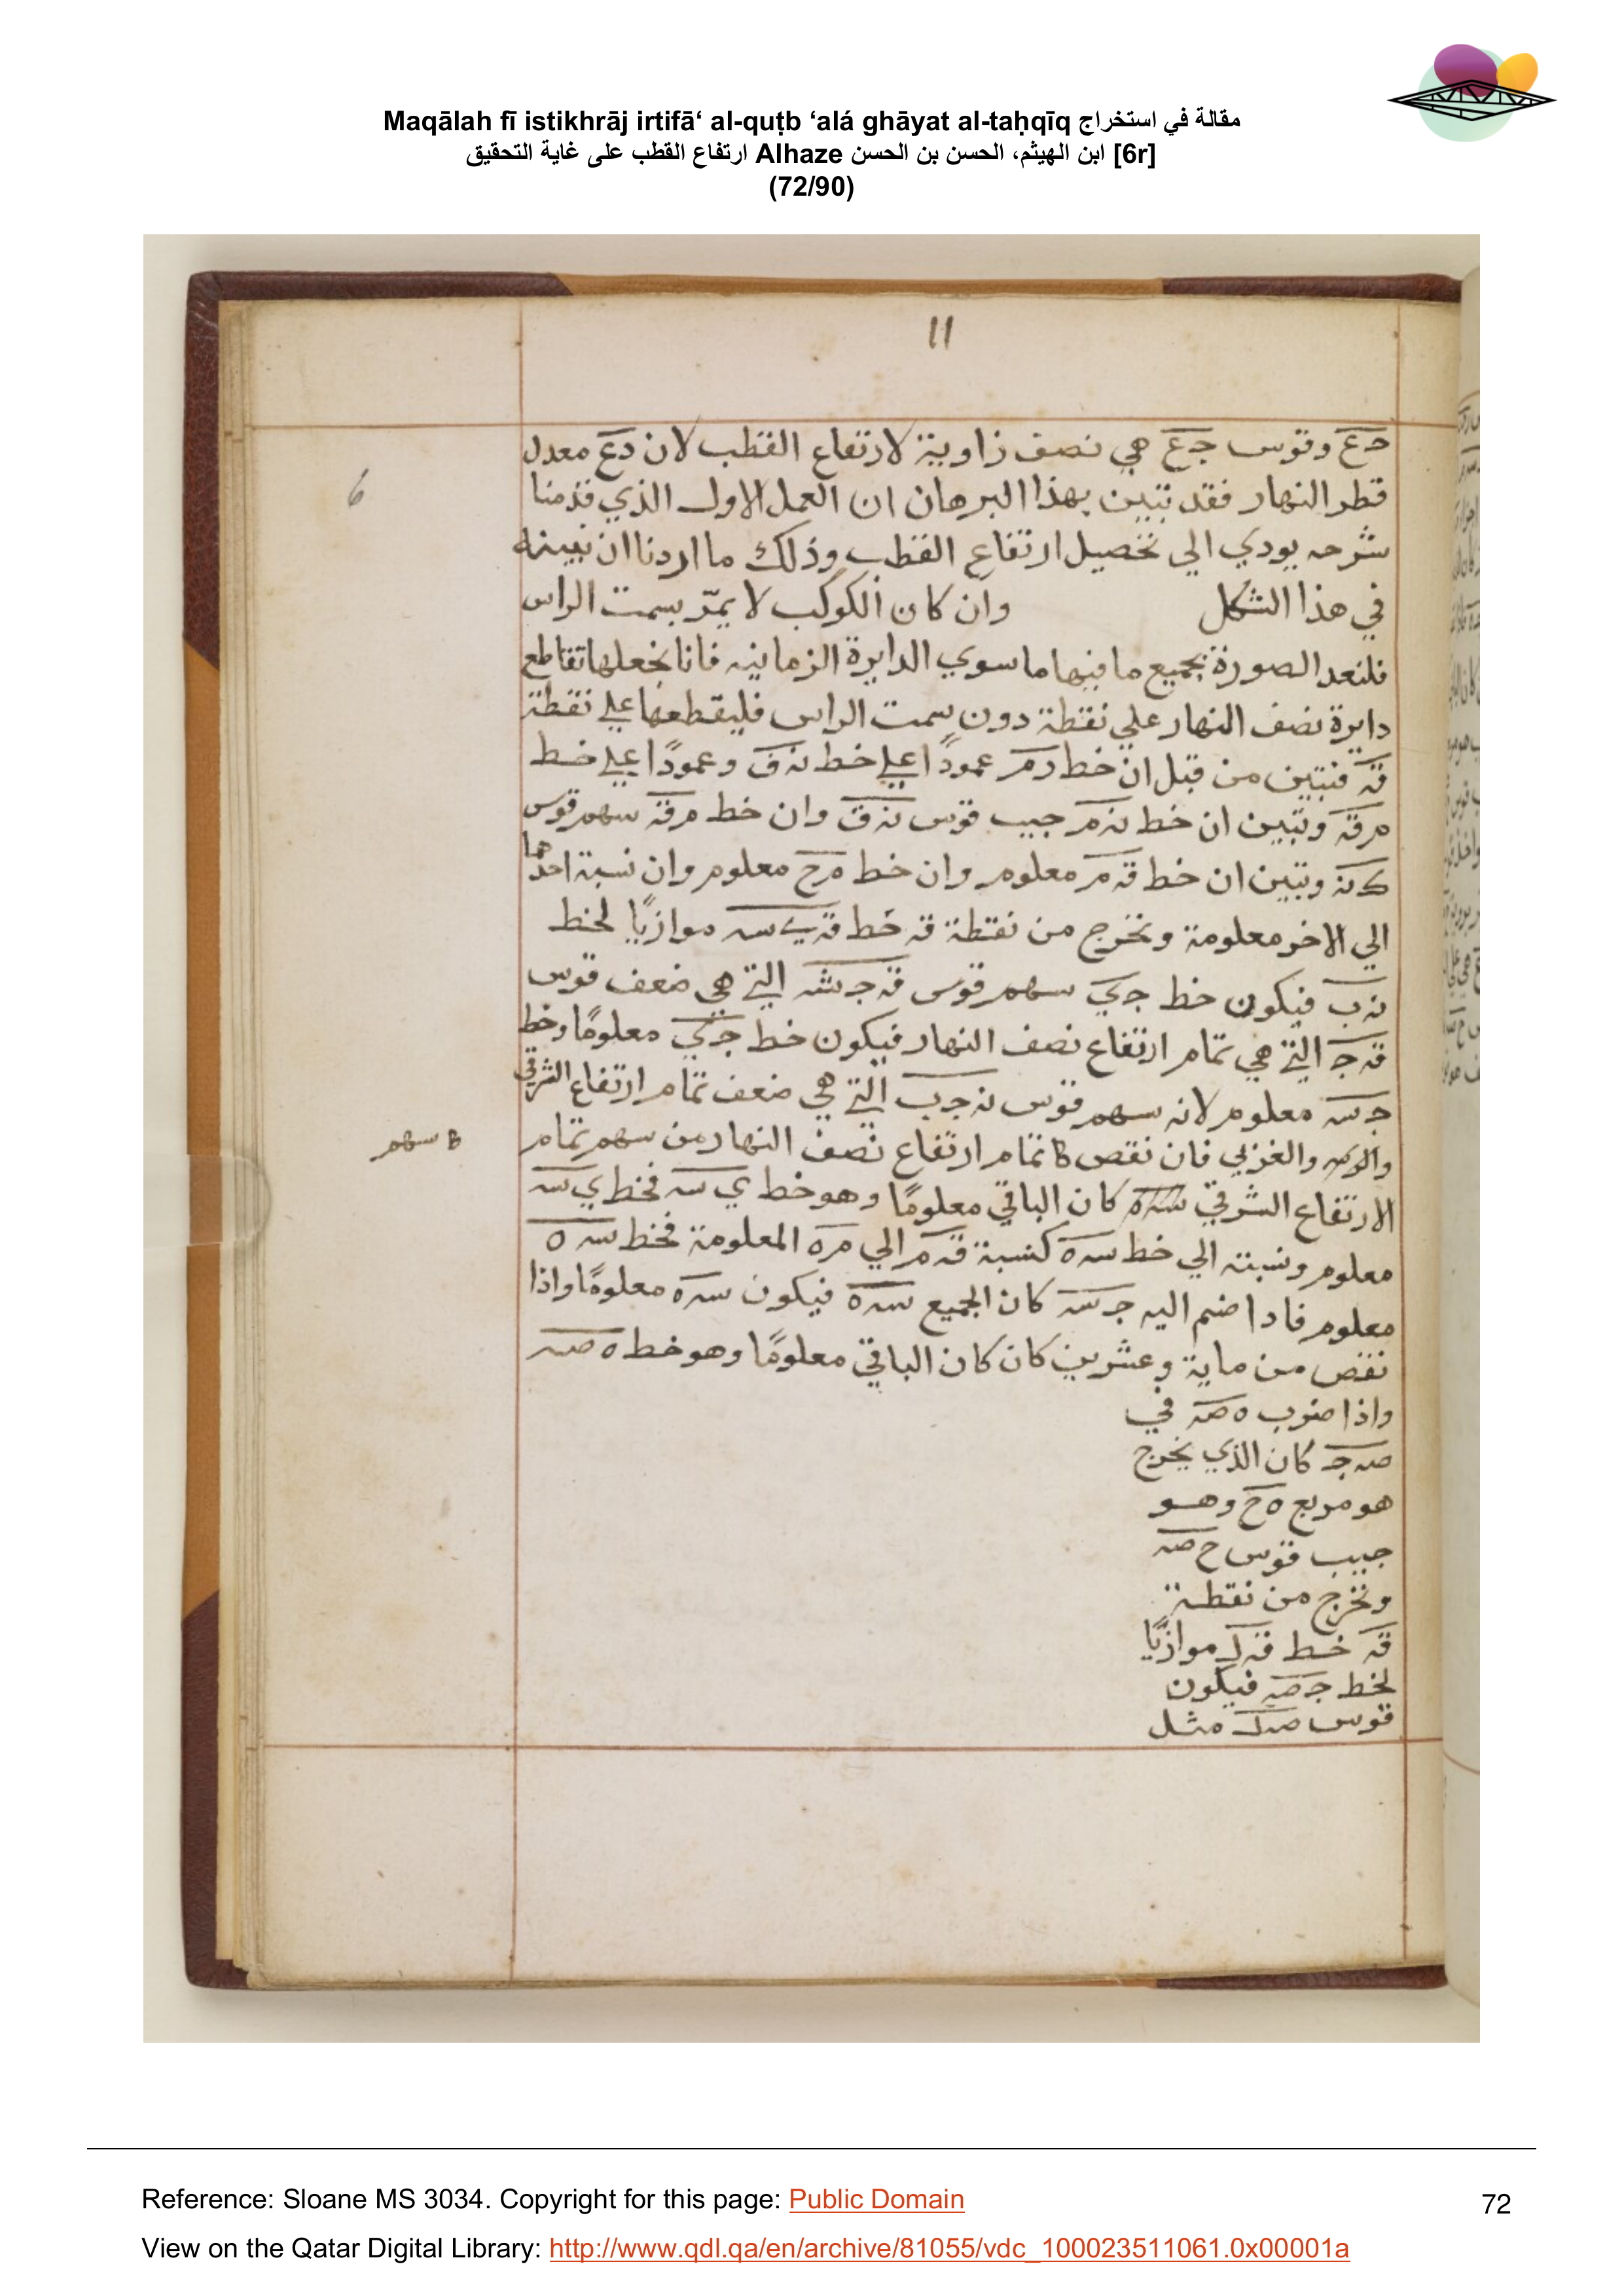 Maqālah fī istikhrāj irtifā‘ al-quṭb ‘alá ghāyat al-taḥqīq مقالة في استخراج
ارتفاع القطب على غاية التحقيق Alhaze ابن الهيثم، الحسن بن الحسن [6r]
(72/90)
11
حع وقوس جع هي نصف زاوية لارتفاع القطب لان دع معدل
6
قطر النهار فقد تبين بهذا البرهان ان العمل الاول الذي قدمنا
شرحه يودي الي تحصيل ارتفاع القطب وذلك ما اردنا ان نبينه
في هذا الشكل وان كان الكوكب لا يمرّ بسمت الراس
فلنعد الصورة بجميع ما فيها ما سوي الدايرة الزمانيه فانا نجعلها تقاطع
دايرة نصف النهار علي نقطة دون سمت الراس فليقطعها علي نقطة
قه فنبين من قبل ان خط رمر عمودًا علي خط نه ق وعمودًا علي خط
مرقه وتبين ان خط نه مر جيب قوس نه ق وان خط مرقه سهم قوس
ك نه وتبين ان خط قه مر معلوم وان خط مرح معلوم وان نسبة احدهما
الي الاخر معلومة ونخرج من نقطة قه خط قه ي سه موازيًا لخط
نه ب فيكون خط جي سهم قوس قه ج شه التي هي ضعف قوس
قه ج التي هي تمام ارتفاع نصف النهار فيكون خط جي معلومًا وخط
ج سه معلوم لانه سهم قوس نه ج ب التي هي ضعف تمام ارتفاع الشرقي
والغربي فان نقص كا تمام ارتفاع نصف النهار من سهم تمام
سهم
الارتفاع الشرقي كان الباقي معلومًا وهو خط ي سه فخط ي سه
معلوم ونسبته الي خط سه ه كنسبة قه م الي مر ه المعلومة فخط سه ه
معلوم فاذا ضم اليه ج سه كان الجميع سه ه فيكون سه ه معلومًا واذا
نقص من ماية وعشرين كان كان الباقي معلومًا وهو خط ه صه
واذا ضرب ه صه في
صه ج كان الذي يخرج
هو مربع ه ح وهو
جيب قوس ح صه
ونخرج من نقطة
قه خط قه ك موازيًا
لخط ج صه فيكون
قوس صه ك مثل
Reference: Sloane MS 3034. Copyright for this page: Public Domain
72
View on the Qatar Digital Library: http://www.qdl.qa/en/archive/81055/vdc_100023511061.0x00001a